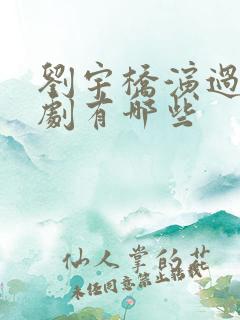 劉宇橋演過
劇有哪些
仙人掌的花
未經同意禁止轉載